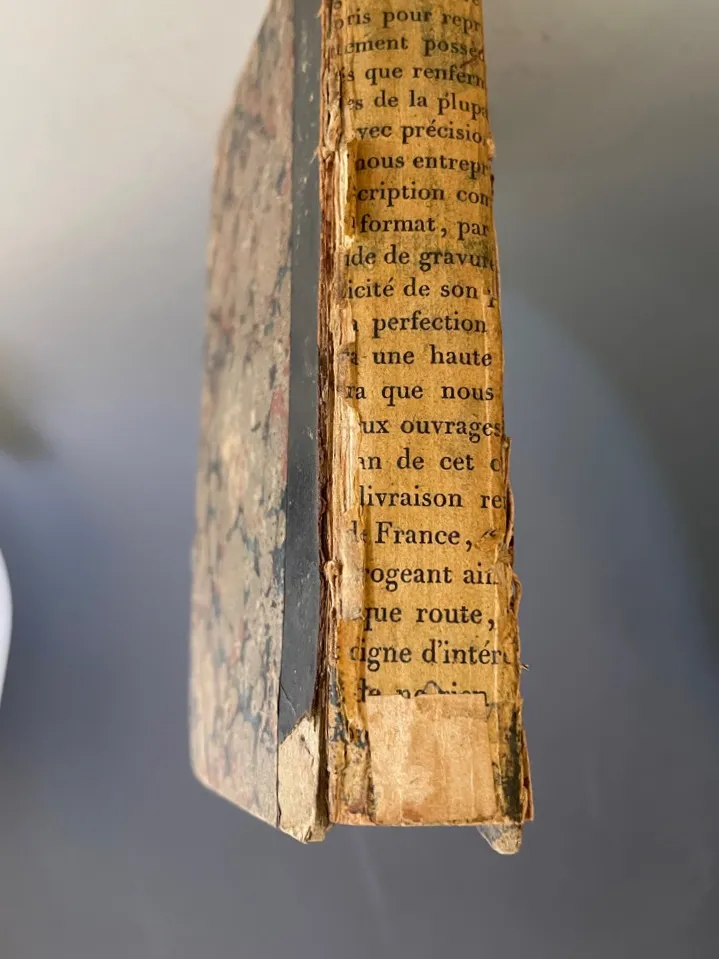 ris pour repr
ement posse
s que renferm
es de la plup
vec précisio
nous entrepr
cription com
format, par
ide de gravure
icité de son
perfection
a une haute
ra que nous
ux ouvrages
an de cet c
livraison re
de France,
rogeant ain
que route,
digne d'intér
de ne rien